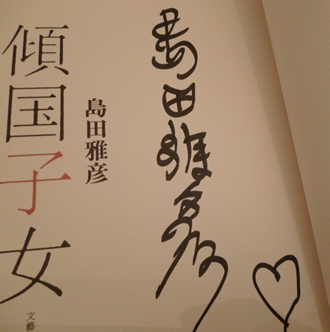 島田雅彦
島田雅彦
傾国子女
文藝